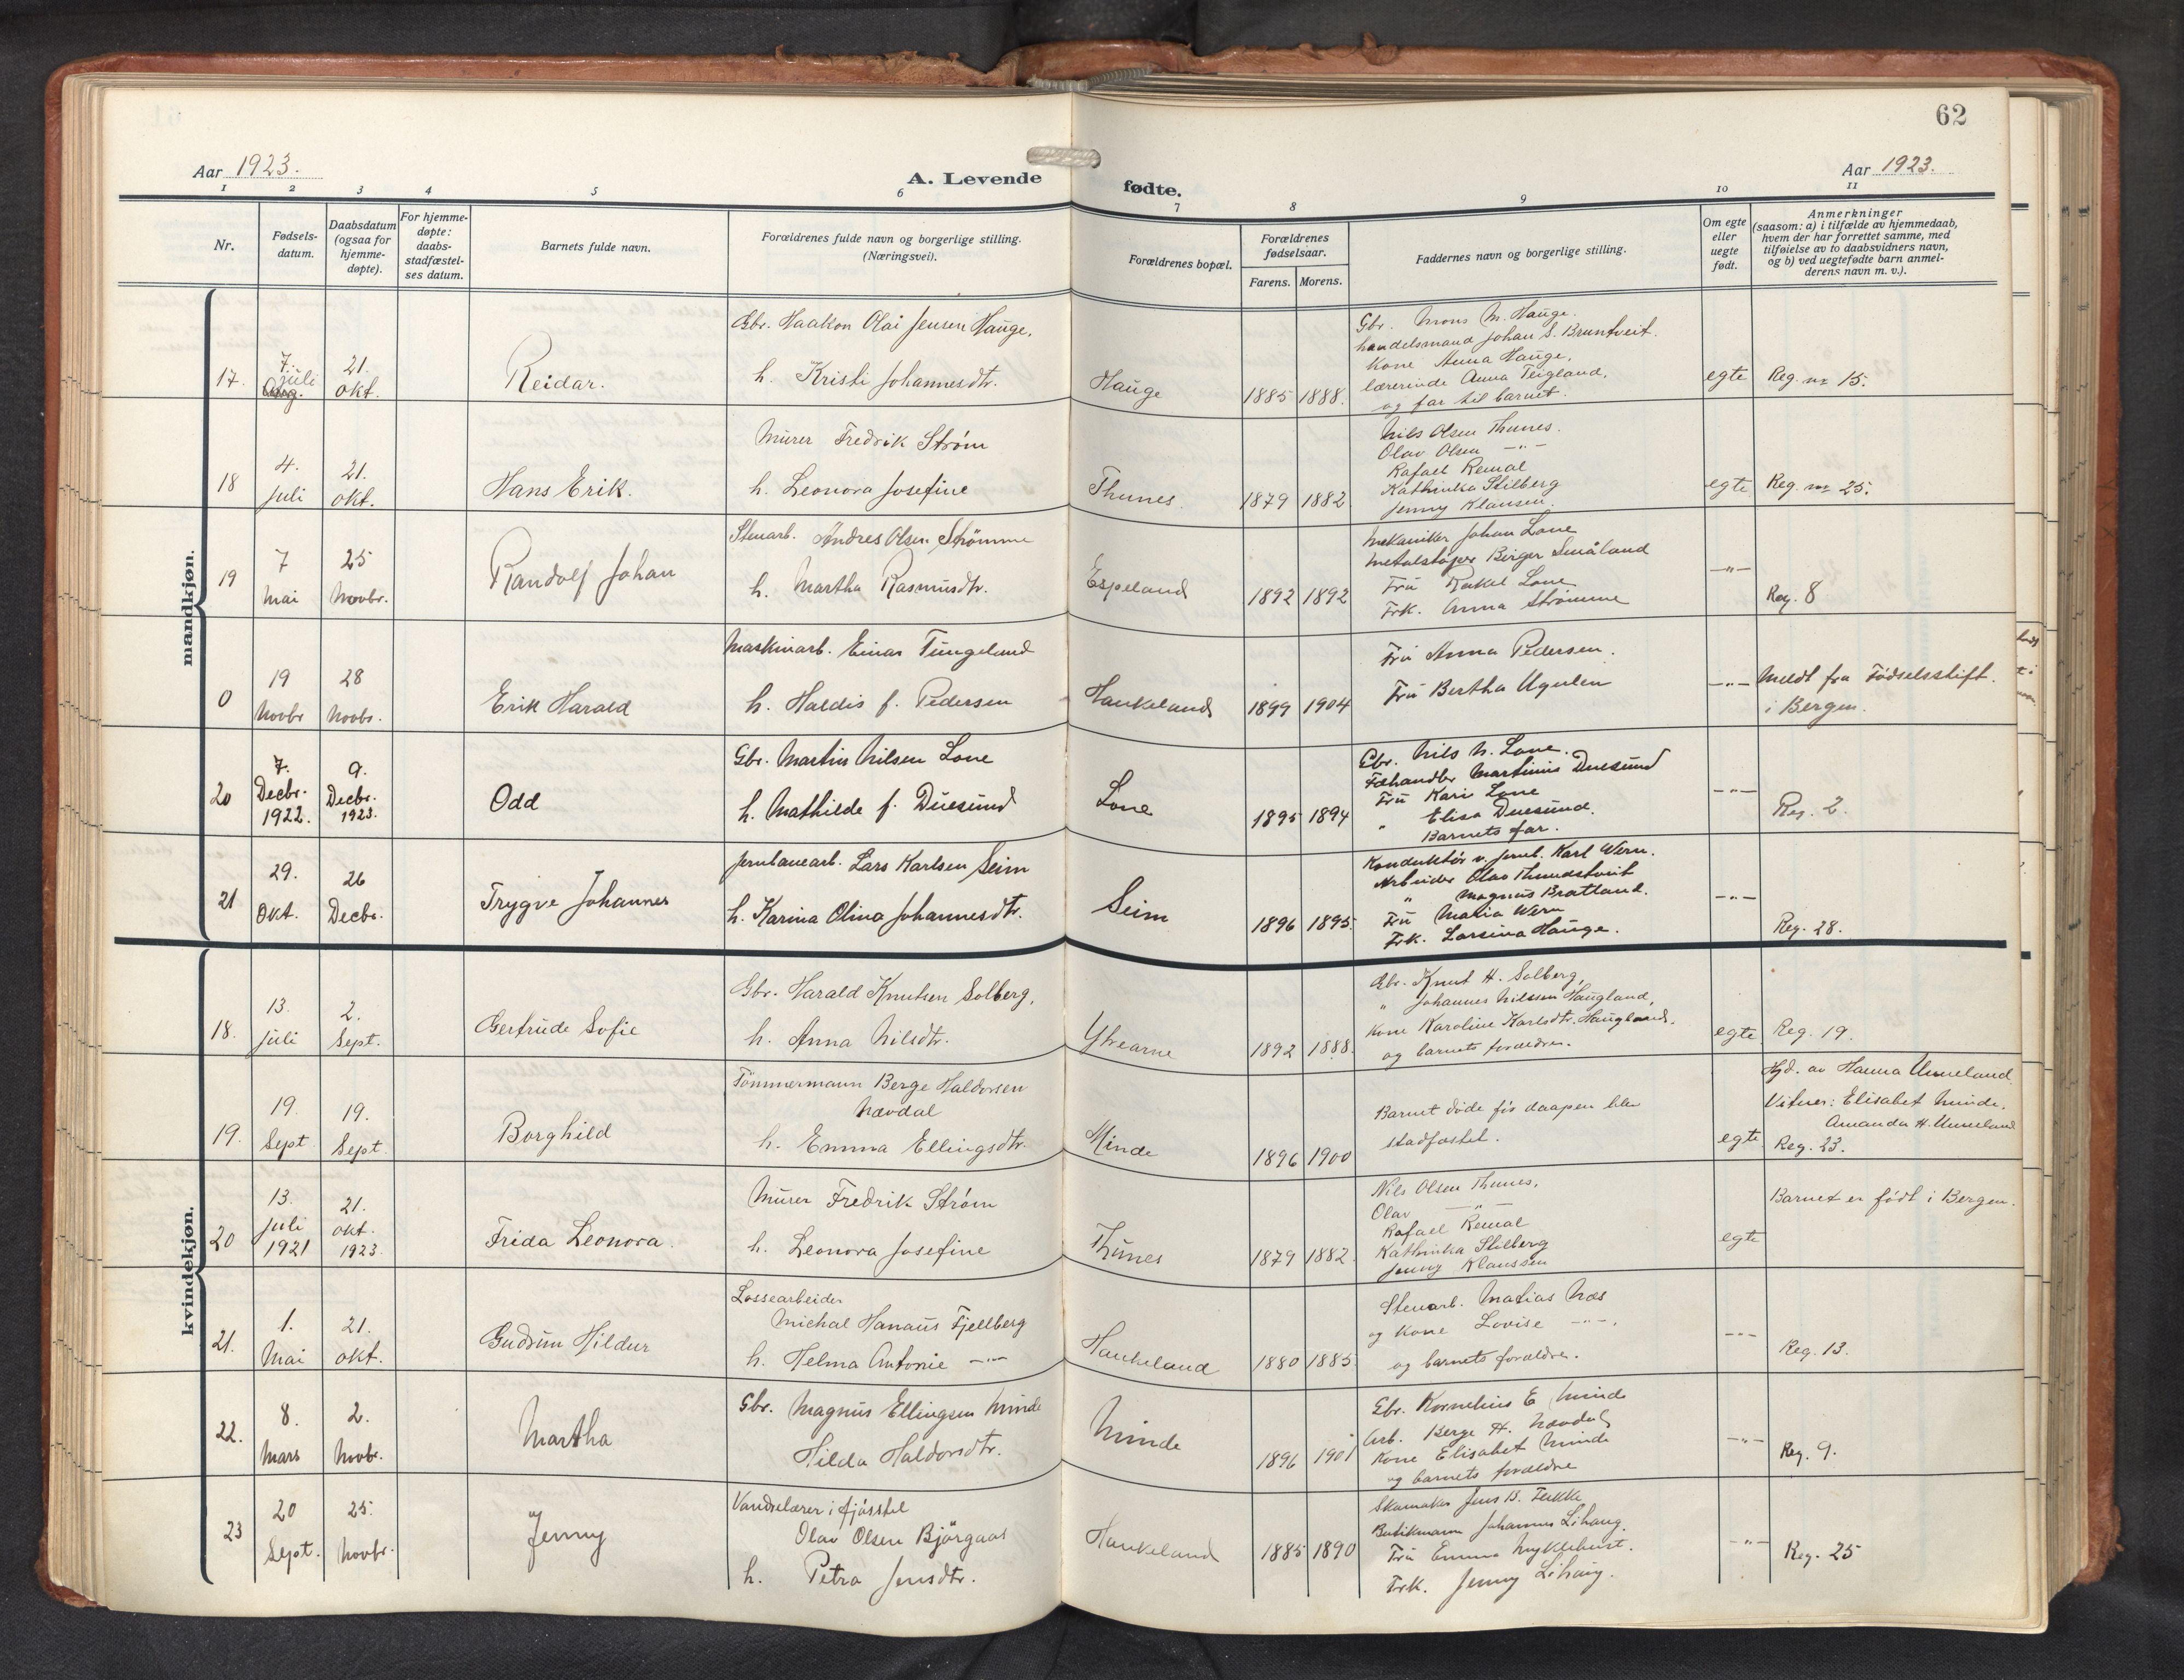 62
Aar 1923.
A. Levende fødte.
Aar 1923.
1 2 3 4 5 6 7 8 9 10 11
Nr.
Fødsels-
datum.
Daabsdatum
(ogsaa for
hjemme-
døpte).
For hjemme-
døpte:
daabs-
stadfæstel-
ses datum.
Barnets fulde navn.
Forældrenes fulde navn og borgerlige stilling.
(Næringsvei).
Forældrenes bopæl.
Forældrenes
fødselsaar.
Farens. Morens.
Faddernes navn og borgerlige stilling.
Om egte
eller
uegte
født.
Anmerkninger
(saasom: a) i tilfælde av hjemmedaab,
hvem der har forrettet samme, med
tilføielse av to daabsvidners navn,
og b) ved uegtefødte barn anmel-
derens navn m. v.).
mandkjøn.
17.
7.
juli
21.
okt.
Reidar.
Gbr. Haakon Olai Jensen Hauge,
h. Kristi Johannesdtr.
Hauge
1885 1888.
Gbr. Mons M. Hauge.
handelsmand Johan S. Bruntveit.
Kone Anna Hauge,
lærerinde Anna Teigland,
og far til barnet.
egte
Reg. nr 15.
18
4.
juli
21.
okt.
Hans Erik.
Murer Fredrik Strøm
h. Leonora Josefine
Thunes.
1879 1882
Nils Olsen Thunes.
Olav Olsen —"—
Rafael Remal
Kathinka Stilberg
Jenny Klausen.
egte
Reg. nr 25.
19
7
Mai
25
Novbr.
Randolf Johan
Stenarb. Andres Olsen Strømme
h. Martha Rasmusdtr.
Espeland
1892 1892
Mekaniker Johan Lone
Metalstøper Birger Småland
Fru Rakel Lone
Frk. Anna Strømme
—"—
Reg. 8
0
19
Novbr
28
Novbr.
Erik Harald
Maskinarb. Einar Tungeland
h. Haldis f. Pedersen
Haukeland
1899 1904
Fru Anna Pedersen.
Fru Bertha Ugulen
—"—
Meldt fra Fødselsstift.
i Bergen.
20
7.
Decbr.
1922.
9.
Decbr.
1923.
Odd
Gbr. Martin Nilsen Lone
h. Mathilde f. Duesund
Lone
1895 1894
Gbr. Nils N. Lone.
Fæhandler Martinus Duesund
Fru Kari Lone
" Elisa Duesund.
Barnets far.
—"—
Reg. 2.
21
29.
Okt.
26
Decbr.
Trygve Johannes
Jernbanearb. Lars Karlsen Seim
h. Karina Olina Johannesdtr.
Seim
1896 1895.
Konduktør v. jernb. Karl Wern.
Arbeider Olav Thundstveit
" Magnus Bratland.
Fru Maria Wern
Frk. Larsina Hauge.
—"—
Reg. 28.
kvindekjøn.
18.
13.
juli
2.
Sept.
Gertrude Sofie
Gbr. Harald Knutsen Solberg,
h. Anna Nilsdtr.
Ytrearne
1892 1888.
Gbr. Knut H. Solberg,
" Johannes Nilssen Haugland,
Kone Karoline Karlsdtr. Haugland,
og barnets forældre.
egte
Reg. 19.
19.
19.
Sept
19.
Sept.
Borghild
Tømmermann Berge Haldorsen
Nævdal
h. Emma Ellingsdtr.
Minde
1896 1900
Barnet døde før daapen blev
stadfæstet.
egte
Hjd. av Hanna Unneland.
Vitner: Elisabet Minde.
Amanda H. Unneland
Reg. 23.
20
13.
juli
1921
21.
okt.
1923
Frida Leonora.
Murer Fredrik Strøm
h. Leonora Josefine
Thunes
1879 1882.
Nils Olsen Thunes,
Olav —"—
Rafael Remal
Kathinka Stilberg
Jenny Klaussen
egte
Barnet er født i Bergen.
21.
1.
Mai
21.
okt.
Gudrun Hildur
Lossearbeider
Michal Hanaus Fjellberg
h. Helma Antonie —"—
Haukeland
1880 1885
Stenarb. Matias Næs
og Kone Lovise —"—.
og barnets forældre.
—"—
Reg. 13.
22.
8.
Mars
2.
Novbr.
Martha
Gbr. Magnus Ellingsen Minde
Hilda Haldorsdtr.
Minde
1896 1901
Gbr. Kornelius E Minde
Arb. Berge H. Nævdal
Kone Elisabet Minde
og barnets forældre
—"—
Reg. 9.
23
20
Sept.
25.
Novbr.
Jenny
Vandrelærer i fjøsstel
Olav Olsen Bjørgaas
h. Petra Jensdtr.
Haukeland
1885 1890
Skomaker Jens B. Tekke
Butikmann Johannes Lihaug.
Fru Emma Myklebust.
Frk. Jenny Lihaug.
—"—
Reg. 25